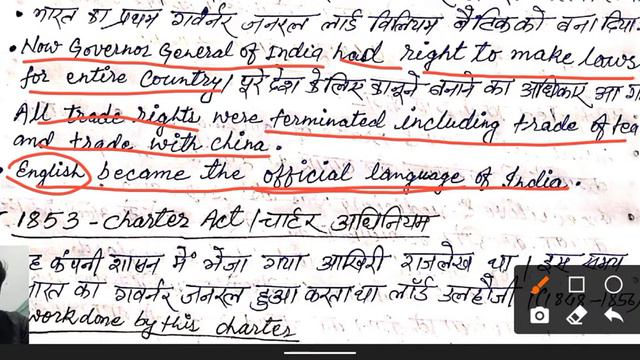 • भारत का प्रथम गवर्नर जनरल लार्ड विलियम बैंटिक को बना दिया
• Now Governor General of India had right to make laws
for entire country / पूरे देश के लिए कानून बनाने का अधिकार आ ग
All trade rights were terminated including trade of tea
and trade with china.
• English became the official language of India.
1853 - Charter Act / चार्टर अधिनियम
ह कंपनी शासन में भेजा गया आखिरी राजलेख था । इस समय
भारत का गवर्नर जनरल हुआ करता था लॉर्ड डलहौजी (1848-1853
work done by this charter